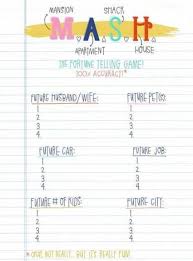 MANSION SHACK
M.A.S.H.
APARTMENT HOUSE
THE FORTUNE TELLING GAME!
100% ACCURACY!*
FUTURE HUSBAND/WIFE: FUTURE PET(S):
1 1
2 2
3. 3.
4. 4.
FUTURE CAR: FUTURE JOB:
1 1
2 2
3. 3.
4. 4.
FUTURE # OF KIDS: FUTURE CITY:
1 1
2 2
3. 3.
4. 4.
* OKAY, NOT REALLY... BUT IT'S REALLY FUN!